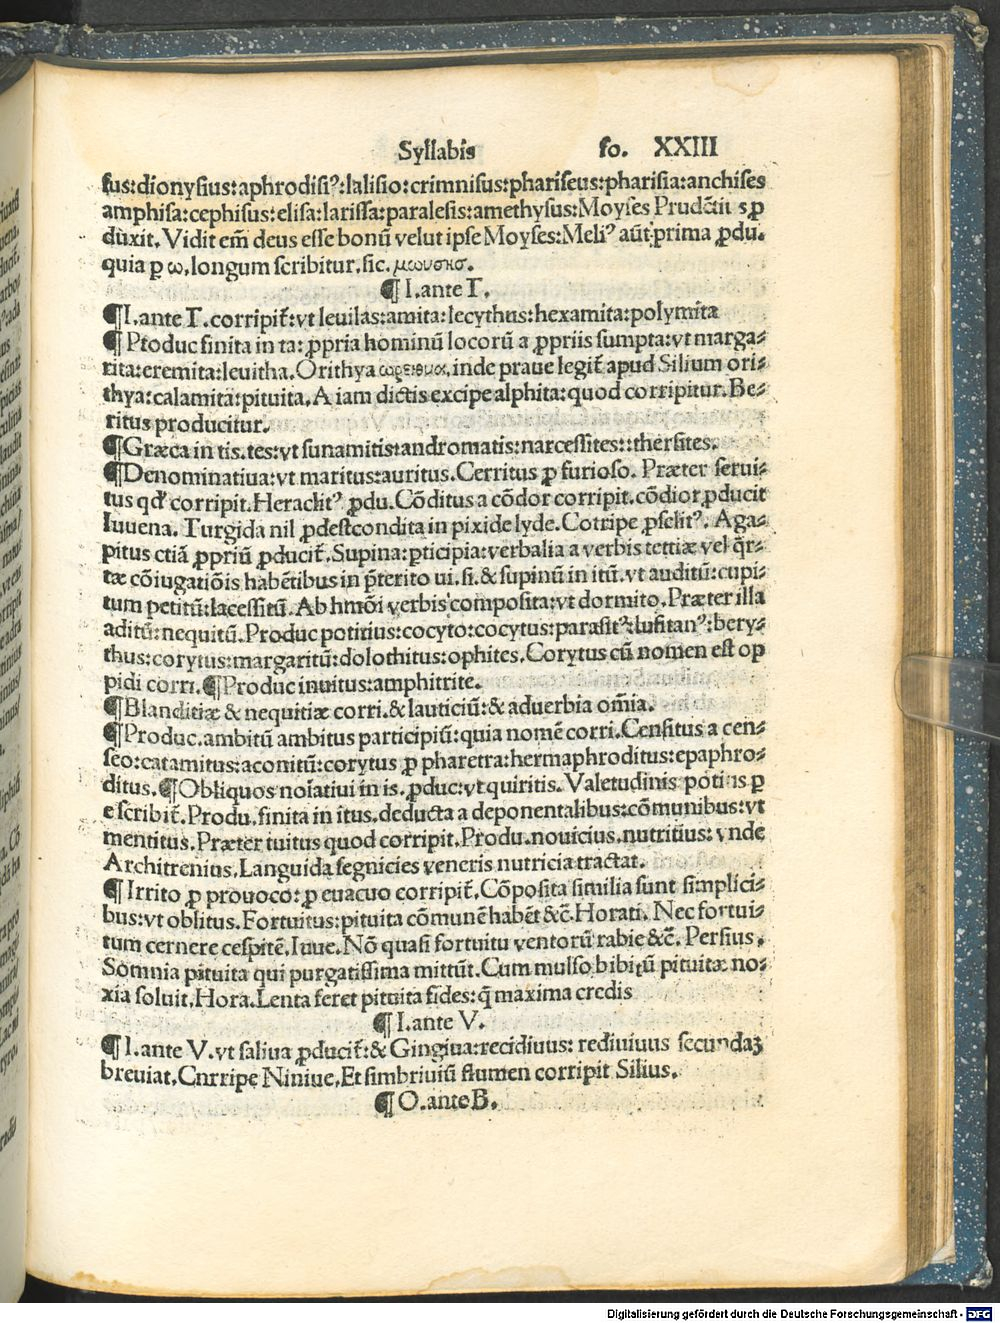 Syllabis fo. XXIII
sus:dionysius:aphrodisiꝰ:lalisio:crimnisus:phariseus:pharisia:anchises
amphisa:cephisus:elisa:larissa:paralesis:amethysus:Moyses Prudẽti s ꝓ
duxit. Vidit em̃ deus esse bonũ velut ipse Moyses:Meliꝰ aũt prima ꝓdu.
quia p ω, longum scribitur. sic. μωυσησ.
¶ I. ante T.
¶I. ante T. corripit̃:vt leuilas:amita:lecythus:hexamita:polymita
¶ Produc finita in ta: ꝓpria hominũ locorũ a ꝓpriis sumpta:vt marga⸗
rita:eremita:leuitha. Orithya ωρειθυια, inde praue legit̃ apud Silium ori⸗
thya:calamita:pituita. A iam dictis excipe alphita:quod corripitur. Be⸗
ritus producitur.
¶Græca in tis. tes:vt sunamitis:andromatis:narcessites::thersites.
¶Denominatiua:vt maritus:auritus. Cerritus ꝓ furioso. Præter serui⸗
tus qđ corripit. Heraclitꝰ ꝓdu. Cõditus a cõdor corripit. cõdior ꝓducit
Iuuena. Turgida nil ꝓdest condita in pixide lyde. Cotripe ꝓselitꝰ. Aga⸗
pitus etiã ꝓpriũ ꝓducit̃. Supina:pticipia:verbalia a verbis tertiæ vel q̃r⸗
tæ cõiugatiõis habẽtibus in p̃terito ui. si. & supinũ in itũ. vt auditũ:cupi⸗
tum petitũ:lacessitũ. Ab hmõi verbis composita:vt dormito. Præter illa
aditũ:nequitũ. Produc potitius:cocyto:cocytus:parasitꝰ:lusitanꝰ:bery⸗
thus:corytus:margaritũ:dolothitus:ophites. Corytus cũ nomen est op
pidi corri. ¶Produc inuitus:amphitrite.
¶Blanditiæ & nequitiæ corri. & lauticiũ:& aduerbia om̃ia.
¶Produc. ambitũ ambitus participiũ:quia nomẽ corri. Censitus a cen⸗
seo:catamitus:aconitũ:corytus ꝓ pharetra:hermaphroditus:epaphro⸗
ditus. ¶Obliquos noĩatiui in is. ꝓduc:vt quiritis. Valetudinis potius p
e scribit̃. Produ. finita in itus, deducta a deponentalibus:cõmunibus:vt
mentitus. Præter tuitus quod corripit. Produ. nouicius. nutritius: vnde
Architrenius. Languida segnicies veneris nutricia tractat.
¶ Irrito ꝓ prouoco: ꝓ euacuo corripit̃. Cõposita similia sunt simplici⸗
bus:vt oblitus. Fortuitus:pituita cõmunẽ habẽt &c̃. Horati. Nec fortui⸗
tum cernere cespitẽ. Iuue. Nõ quasi fortuitu ventorũ rabie &c̃. Persius.
Somnia pituita qui purgatissima mittũt. Cum mulso bibitũ pituitæ no⸗
xia soluit. Hora. Lenta feret pituita fides: q̃ maxima credis
¶ I. ante V.
¶ I. ante V. vt saliua ꝓducit̃:& Gingiua:recidiuus: rediuiuus secundaʒ
breuiat. Cnrripe Niniue. Et simbriuiũ flumen corripit Silius.
¶ O. ante B.
Digitalisierung gefördert durch die Deutsche Forschungsgemeinschaft - DFG